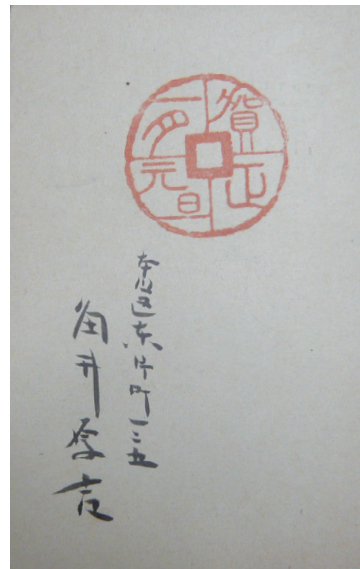 賀正
一月元旦
本郷区東片町一三五
角井厚吉